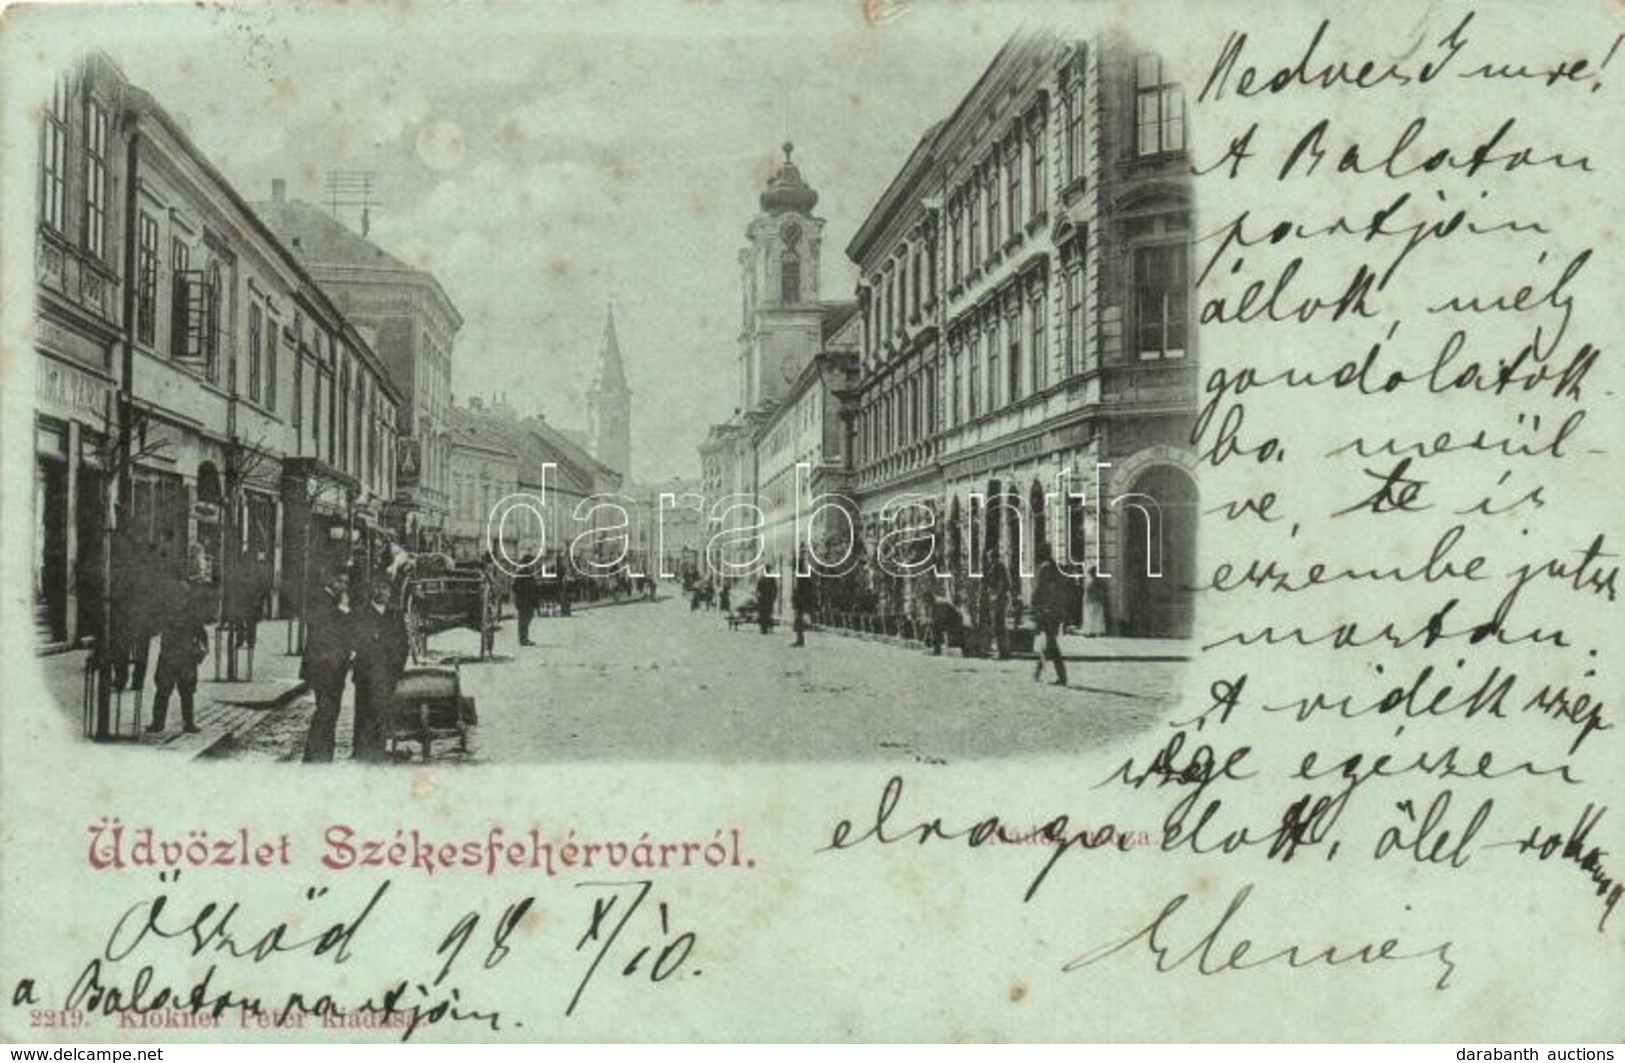 Kedves Imre!
A Balaton
partján
állok, mély
gondolatok
ba merül-
ve, te is
eszembe jutsz
mostan.
A vidék szép
sége egészen
elragadott, ölel rokonod
Elemér
Üdvözlet Székesfehérvárról.
Öszöd 98 X/10.
a Balaton partján.
2219. Klökner Péter kiadása.
darabanth
www.delcampe.net
darabanth auctions